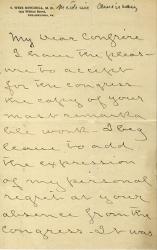 S. WEIR MITCHELL, M. D.
PHILADELPHIA, PA.
My dear Confrère
I have the pleas-
ure to accept
for the congress
the copy of your
most remarka
ble work - I beg
leave to add
the expression
of my personal
regret at your
absence from the
Congress - It was